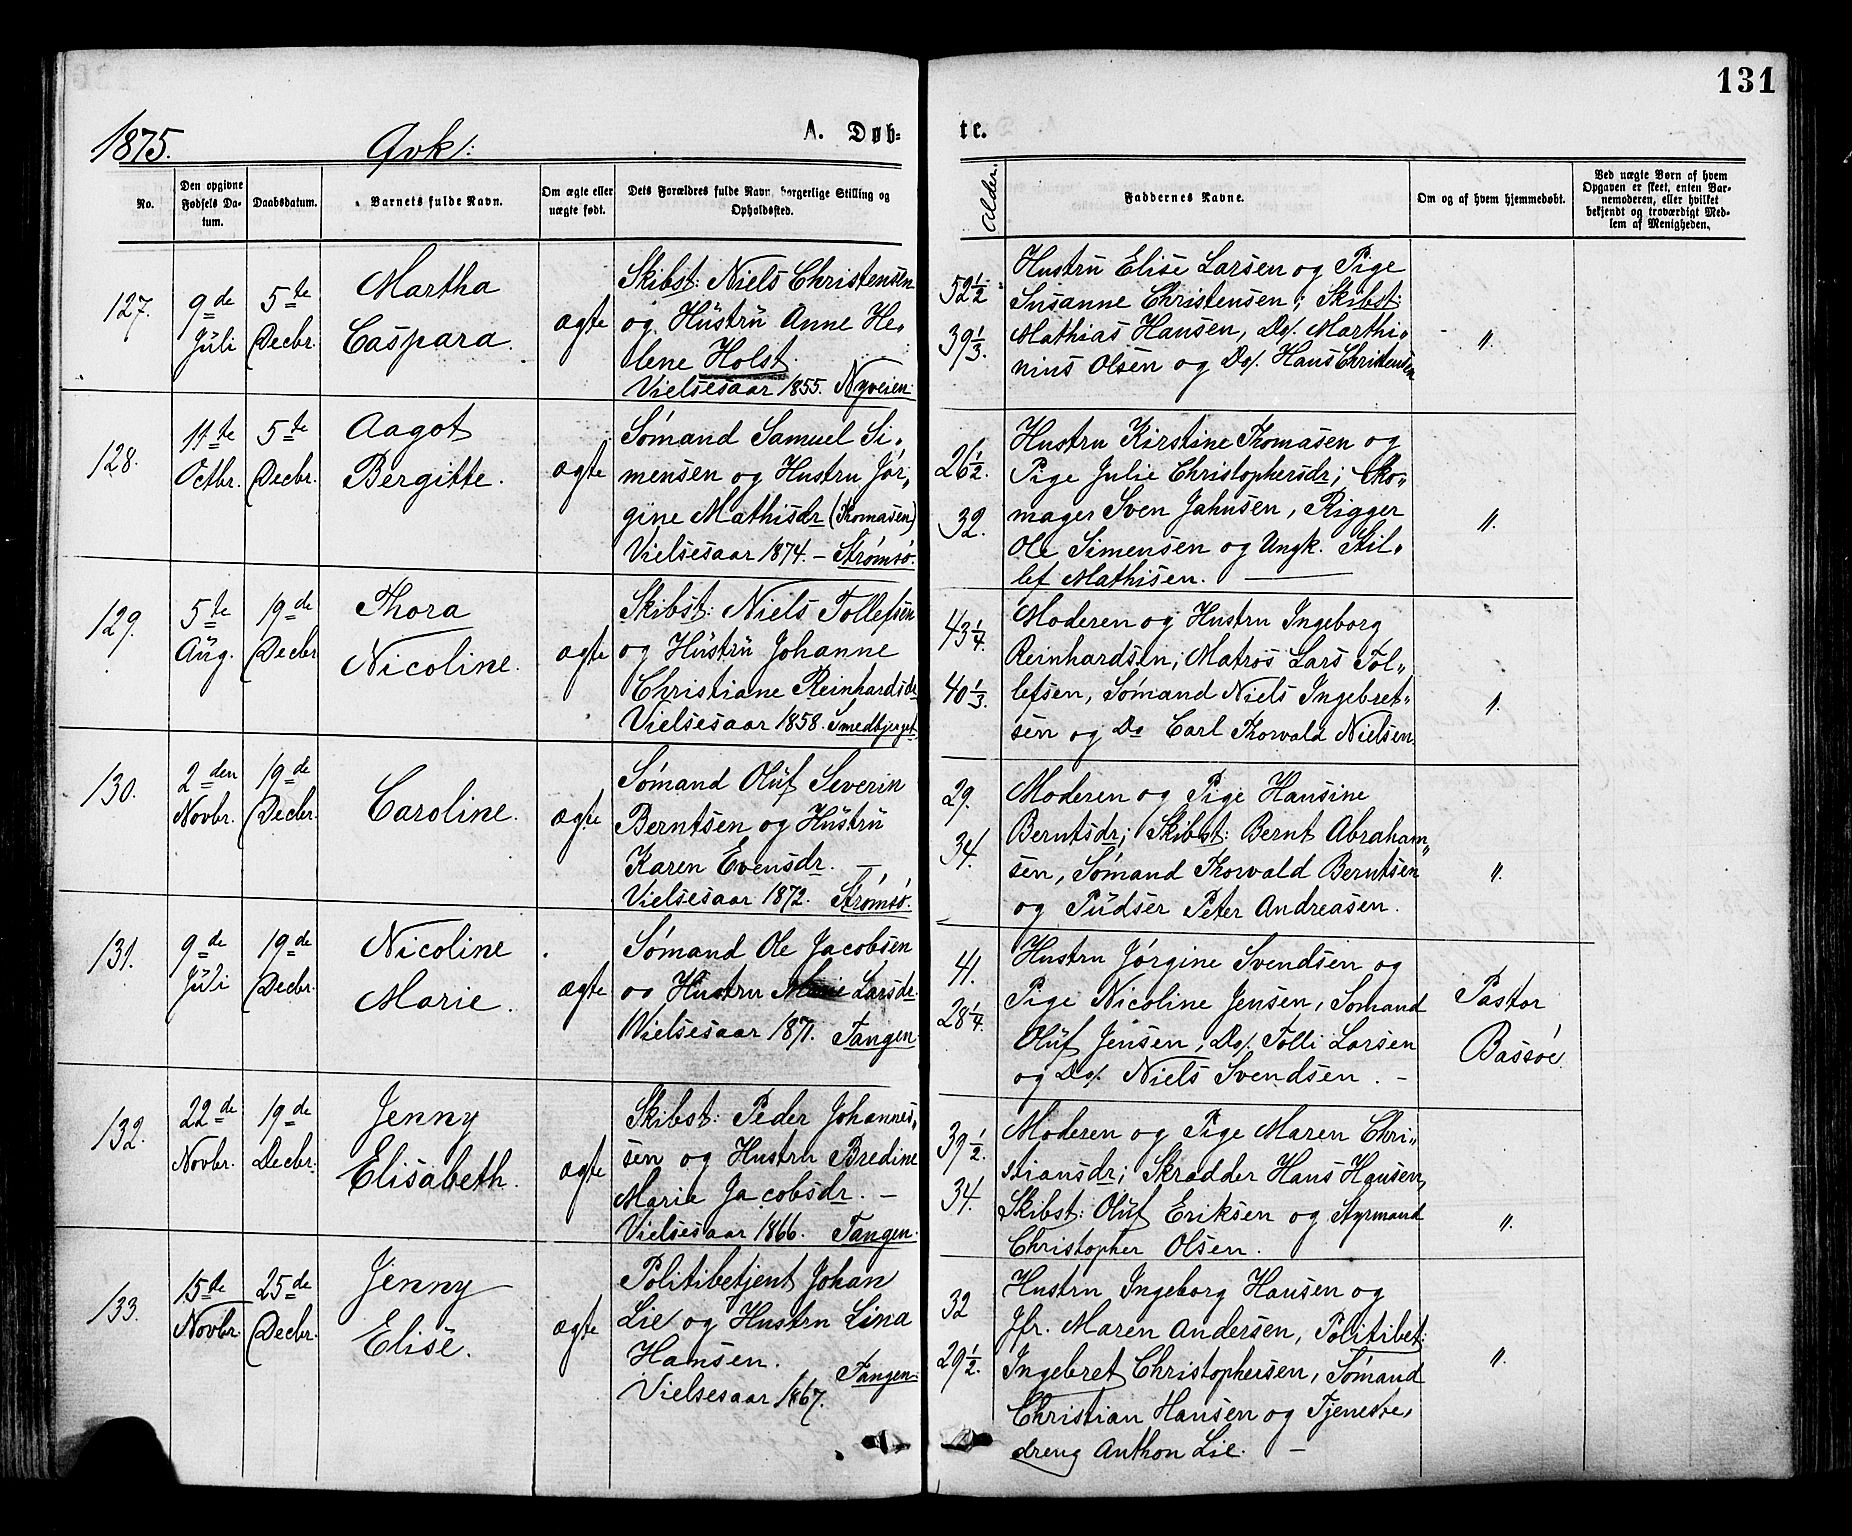 131
1875. Qvk: A. Døb= te.
No.
Den opgivne Fødsels Da-tum.
Daabsdatum.
Barnets fulde Navn.
Om ægte eller uægte født.
Dets Forældres fulde Navn, borgerlige Stilling og Opholdssted.
Alder.
Faddernes Navne.
Om og af hvem hjemmedøbt.
Ved uægte Børn af hvem Opgaven er skeet, enten Bar-nemoderen, eller hvilket bekjendt og troværdigt Med-lem af Menigheden.
127.
9de Juli
5te Decbr.
Martha
Caspara.
ægte
Skibst: Niels Christensen
og Hustru Anne He-
lene Holst.
Vielsesaar 1855. Nyveien.
52 1/2
39 1/3.
Hustru Elise Larsen og Pige
Susanne Christensen; Skibst:
Mathias Hansen, Do/. Marthi-
nius Olsen og Do/. Hans Christensen
"
128.
11te Octbr.
5te Decbr.
Aagot
Bergitte.
ægte
Sømand Samuel Si-
mensen og Hustru Jør-
gine Mathisdr (Thomasen)
Vielsesaar 1874. – Strømsø.
26 1/2.
32.
Hustru Kirstine Thomasen og
Pige Julie Christophersdr; Sko-
mager Sven Jahnsen, Rigger
Ole Simensen og Ungk.
Mathisen.
"
129.
5te Aug.
19de Decbr
Thora
Nicoline.
ægte
Skibst: Niels Tollefsen
og Hustru Johanne
Christiane Reinhardsdr
Vielsesaar 1858. Smedbjerget.
43 1/4.
40 1/3.
Moderen og Hustru Ingeborg
Reinhardsen; Matros Lars Tol-
lefsen, Sømand Niels Ingebret-
sen og Do Carl Thorvald Nielsen.
"
130.
2den Novbr.
19de Decbr.
Caroline.
ægte
Sømand Oluf Severin
Berntsen og Hustru
Karen Evensdr. –
Vielsesaar 1872. Strømsø.
29.
34.
Moderen og Pige Hansine
Berntsdr; Skibst: Bernt Abraham-
sen, Sømand Thorvald Berntsen
og Pudser Peter Andreasen.
"
131.
9de Juli
19de Decbr.
Nicoline
Marie.
ægte
Sømand Ole Jacobsen
og Hustru Larsdr.
Vielsesaar 1871. Tangen
41.
28 1/4.
Hustru Jørgine Svendsen og
Pige Nicoline Jensen, Sømand
Oluf Jensen, Do/. Tolli Larsen
og Do/. Niels Svendsen. –
Pastor
Bassøe.
132.
22de Novbr.
19de Decbr.
Jenny
Elisabeth.
ægte
Skibst: Peder Johannes-
sen og Hustru Bredine
Marie Jacobsdr. –
Vielsesaar 1866. Tangen.
39 1/2.
34.
Moderen og Pige Maren Chri-
stiansdr; Skrædder Hans Hansen,
Skibst: Oluf Eriksen og Styrmand
Christopher Olsen.
"
133.
15te Novbr.
25de Decbr.
Jenny
Elise.
ægte
Politibetjent Johan
Lie og Hustru Lina
Hansen. Tangen.
Vielsesaar 1867.
32
29 1/2.
Hustru Ingeborg Hansen og
Jfr. Maren Andersen, Politibet:
Ingebret Christophersen, Sømand
Christian Hansen og Tjeneste-
dreng Anthon Lie. –
"